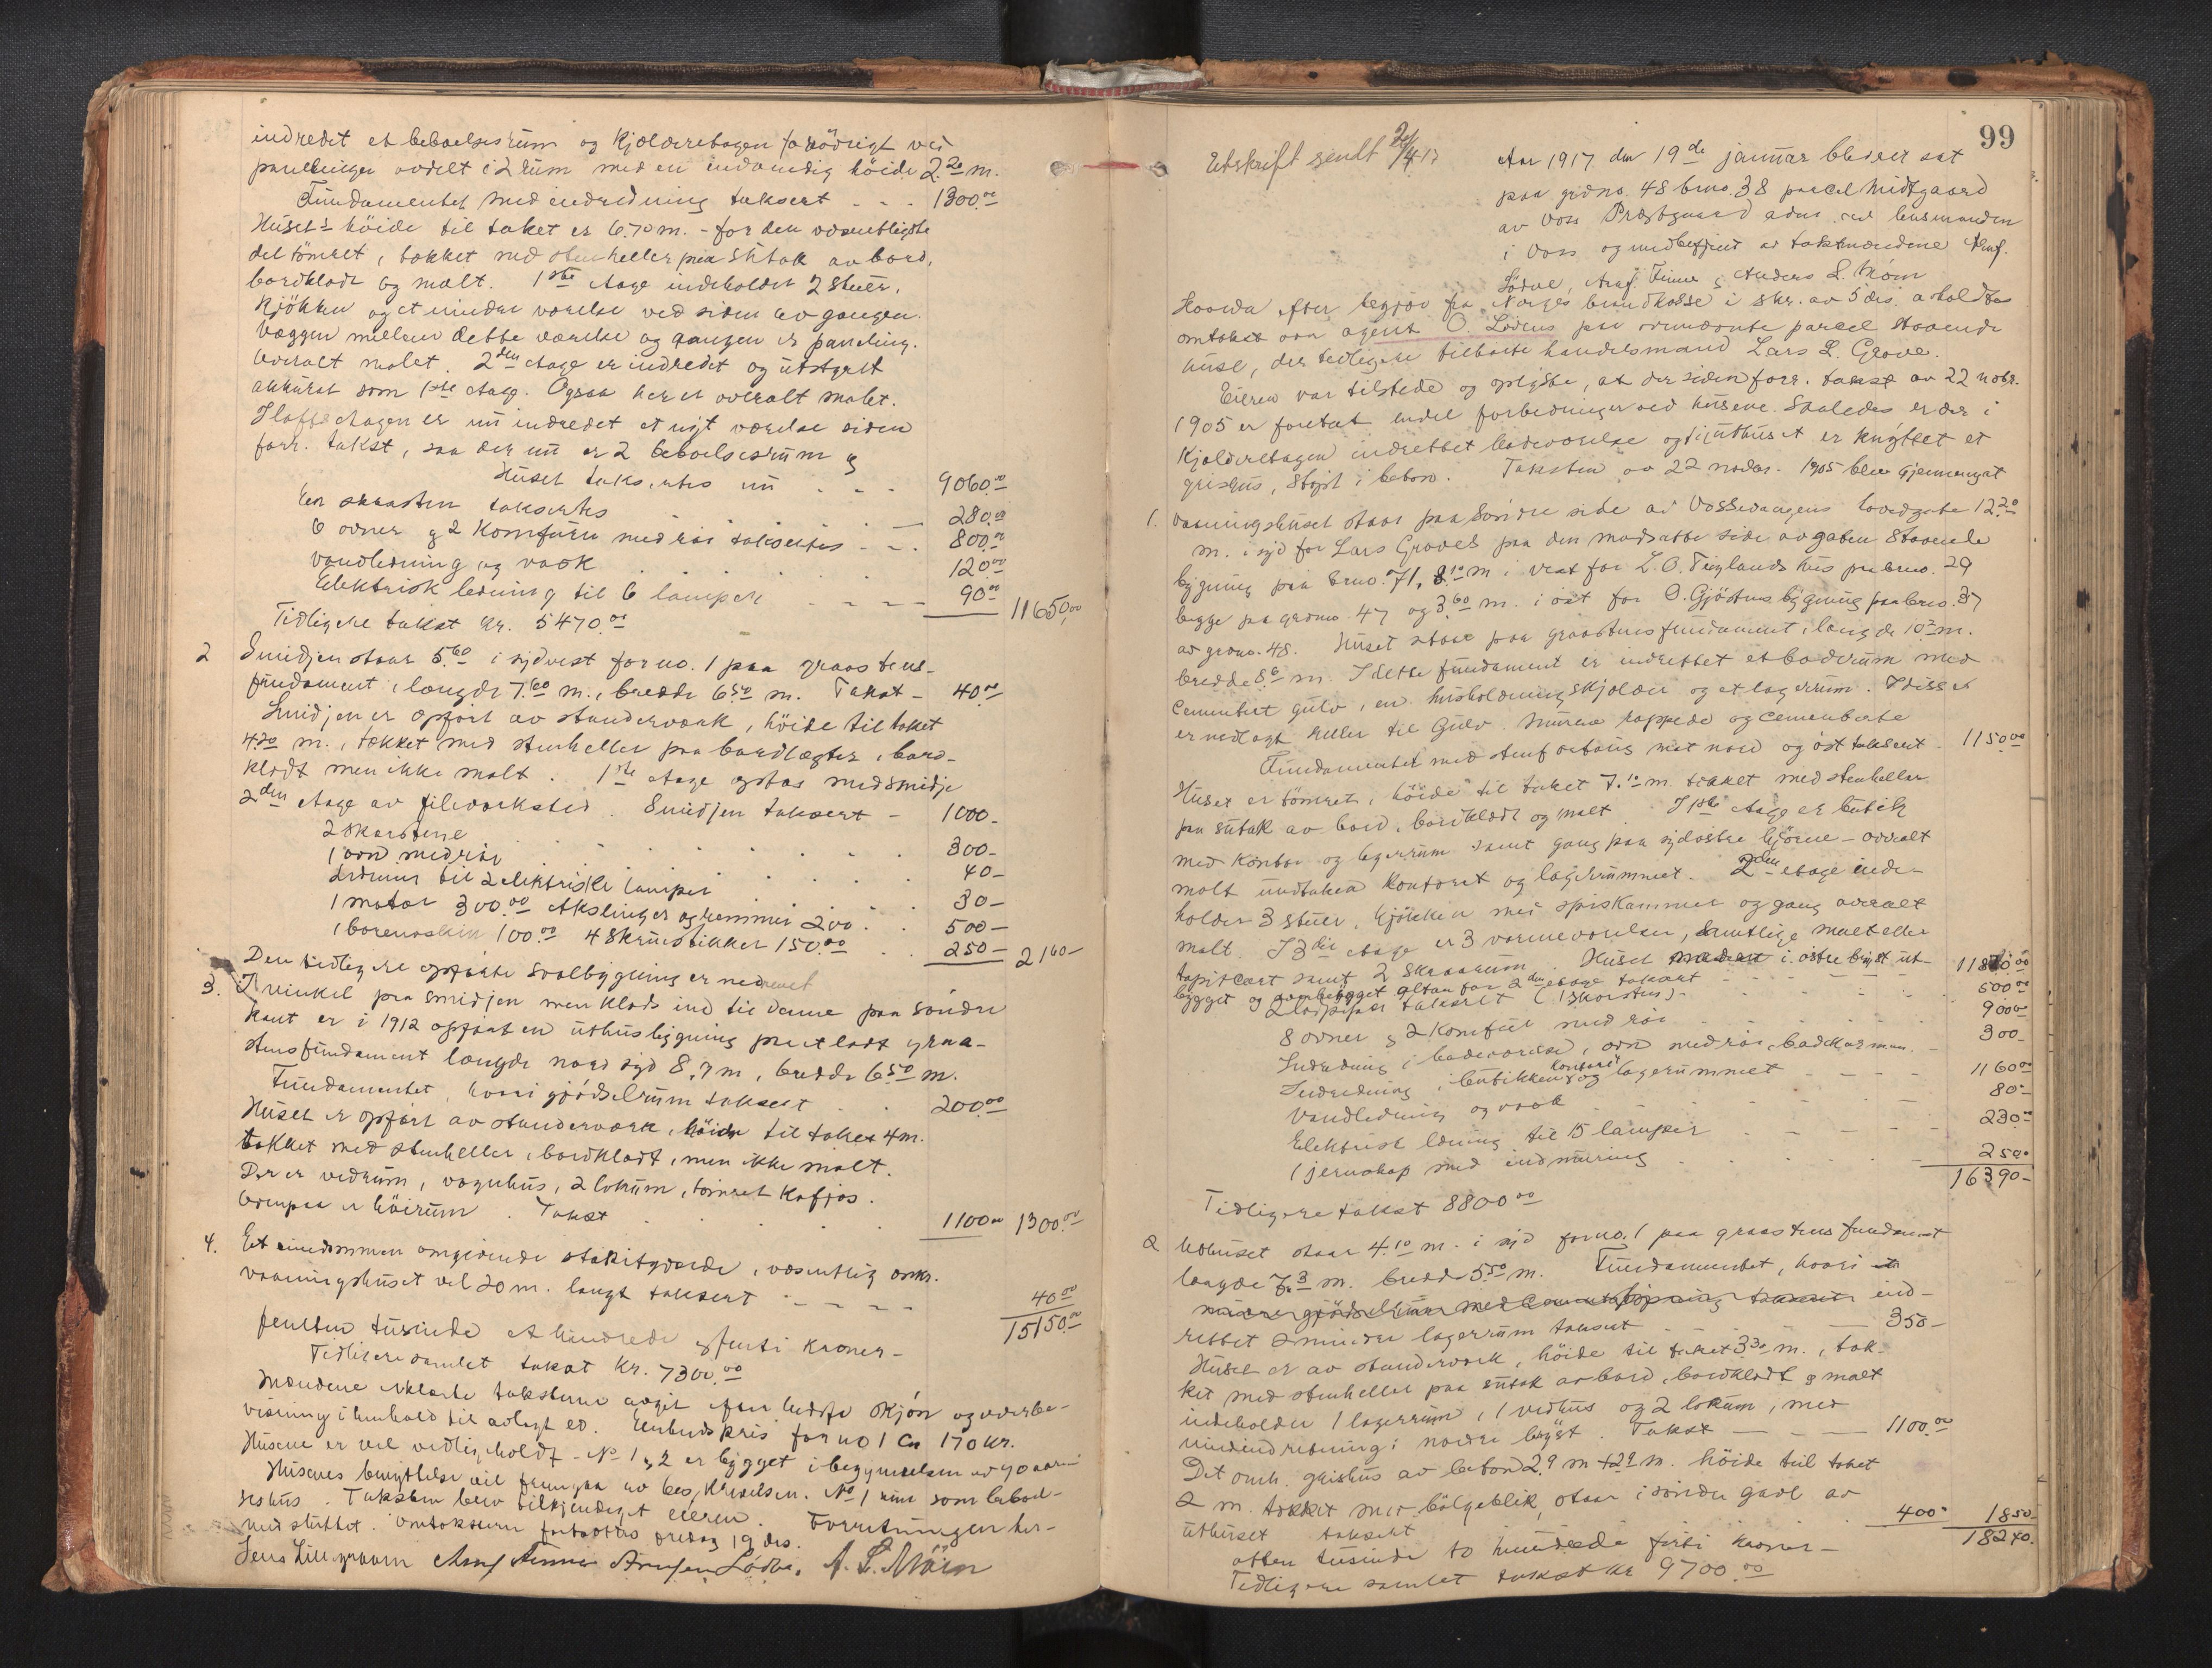 indredet et beboelsesrum og Kjælderetagen forövrigt ved
panelinger avdelt i 2 rum med en indvendig höide 2.20 m.
Fundamentet med indredning taksert - - - 1300.00
Husets höide til taket er 6.70 m. - for den væsentligste
del tömret, tækket med stenheller paa sutak av bord,
bordklædt og malt. 1ste etage indeholder 2 stuer,
Kjökken og et mindre værelse ved siden av gangen.
Væggen mellem dette værelse og gangen er paneling.
Overalt malet. 2den etage er indredet og utstyrt
akkurat som 1ste etage. Ogsaa her er overalt malet.
I loftsetagen er nu indredet et nyt værelse siden
forr. takst, saa der nu er 2 beboelsesrum og
Huset takseres nu - - - 9060.00
En skorsten takseres 280.00
6 ovner og 2 Komfurer med rör takseres - - . 800.00
Vandledning og vask . . . . . 120.00
Elektrisk ledning til 6 lamper - - - - 90.00 11650,00
Tidligere takst kr. 5470.00
2 Smidjen staar 5.60 i sydvest for no. 1 paa graastens-
fundament, længde 7.60 m., bredde 6.50 m. Takst - 40.00
Smidjen er opfört av standerværk, höide til taket
4.20 m., tækket med stenheller paa bordlægter, bord-
klædt men ikke malt. 1ste etage optas med smidje
2den etage av fileværksted. Smidjen taksert - 1000-
2 skorstene . . . . . . . 300-
1 ovn med rör . . . . . . 40-
Ledning til 2 elektriske lamper . . . 30-
1 motor 300.00 Akslinger og remmer 200 . . 500-
1 boremaskin 100.00 4 Skruestikker 150.00 . . 250- 2160-
Den tidligere opförte svalbygning er nedrevet
3. I vinkel paa smidjen men klods ind til denne paa söndre
kant er i 1912 opfört en uthusbygning paa et lidt graa-
stensfundament længde nord syd 8.7 m, bredde 6.50 m.
Fundamentet, hvori gjödselrum taksert . . 200.00
Huset er opfört av standerværk, höide til taket 4 m.
tækket med stenheller, bordklædt, men ikke malt.
Der er vedrum, vognhus, 2 lokum, tömret Kafjøs.
Ovenpaa er höirum. Takst . . . . . 1100.00 1300.00
4. Et eiendommen omgivende stakitgjærde, væsentlig omkr.
vaaningshuset vel 20 m. langt taksert - - - - 40.00
15150.00
femten tusinde et hundrede og femti kroner -
Tidligere samlet takst kr. 7300.00
Mændene erklærte taksterne avgit efter bedste skjön og overbe-
visning i henhold til avlagt ed. Enhedspris for no 1 Ca 170 kr.
Husene er vel vedlikeholdt - No 1 og 2 er bygget i begyndelsen av 90 aarene
Husenes benyttelse vil fremgaa av beskrivelsen. No 1 kun som beboel-
seshus. Taksten blev tilkjendegit eieren. Forretningen her-
med sluttet. Omtaksten fortsættes fredag 19 ds.
Jens Lillegraven Arnf. Finne Arnfin Lödve. A. L. Mölster
99
Utskrift sendt 2/4 17
Aar 1917 den 19de januar blev der sat
paa grdno. 48 brno. 38 parcel Midtgaard
av Voss Præstgaard adm. ved lensmanden
i Voss og medbetjent av takstmændene Arnf.
Lödve, Arnf. Finne og Anders L. Mölster
Hvorda efter begjær fra Norges brandkasse i skr. av 5 ds. avholdtes
omtakst ved agent O. Lödens paa nævnte parcel staaende
huse, der tidligere tilhörte handelsmand Lars L. Grove.
Eieren var tilstede og oplyste, at der siden forr. takst av 22 nobr.
1905 er foretat endel forbedringer ved husene. Saaledes er der i
Kjælderetagen indrettet badeværelse og til uthuset er knyttet et
grishus, stöpt i beton. Taksten av 22 novbr. 1905 blev gjennemgaat
1. Vaaningshuset staar paa söndre side av Vossevangens hovedgate 12.20
m. i syd for Lars Groves paa den motsatte side av gaten staaende
bygning paa brno. 71, 8.10 m i vest for L. O. Teiglands hus paa brno. 29
begge paa grdno. 47 og 3.60 m. i öst for O. Gjöstens bygning paa brno. 37
av grdno. 48. Huset staar paa graastensfundament, længde 10.2 m.
bredde 8.6 m. I dette fundament er indrettet et baderum med
Cementert gulv, en husholdningskjælder og et lagerrum. I disse
er nedlagt heller til Gulv. Murene rappede og cementerte
Fundamentet med stenfortaug mot nord og öst taksert - 1150.00
Huset er tömret, höide til taket 7.10 m. tækket med stenheller
paa sutak av bord, bordklædt og malt. I 1ste etage er butik
med kontor og lagerrum samt gang paa sydöstre hjörne - overalt
malt undtaken kontoret og lagerrummet. 2den etage inde-
holder 3 stuer, kjökken med spiskammer og gang overalt
malt. I 3die etage er 3 varmeværelser, samtlige malt eller
tapitsert samt 2 skraarum. Huset i östre bryst ut-
bygget og ombygget altan for 2den etage taksert 11870.00
2 ladpiper taksert (1 skorsten) - - - - - - 600.00
8 ovner og 2 komfur med rör - - - - 900.00
Indredning i badeværelse, ovn med rör, badekar m.m. - 300-
Indredning i butikken, kontor og lagerrummet - - - - 1160.00
Vandledning og vask - - - - - - 80-
Elektrisk ledning til 15 lamper - - - - - 230-
1 jernskap med indmuring - - - - - 250-
16390-
Tidligere takst 8800.00
2 Uthuset staar 4.10 m. i syd for no. 1 paa graastensfundament
længde 7.3 m. bredde 5.50 m. Fundamentet, hvori
ind-
rettet 2 mindre lagerrum taksert - - - 350-
Huset er av standerværk, höide til taket 3.30 m., tæk-
ket med stenheller paa sutak av bord, bordklædt og malt
indeholder 1 lagerrum, 1 vedhus og 2 lokum, med
i nordre bryst. Takst - - - - 1100.00
Det omh. grishus av beton 2.9 m + 2.9 m. höide til taket
2 m. tækket med bölgeblik, staar i söndre gavl av
uthuset taksert 400- 1850-
18240.
atten tusinde to hundrede firti kroner -
Tidligere samlet takst kr 9700.00